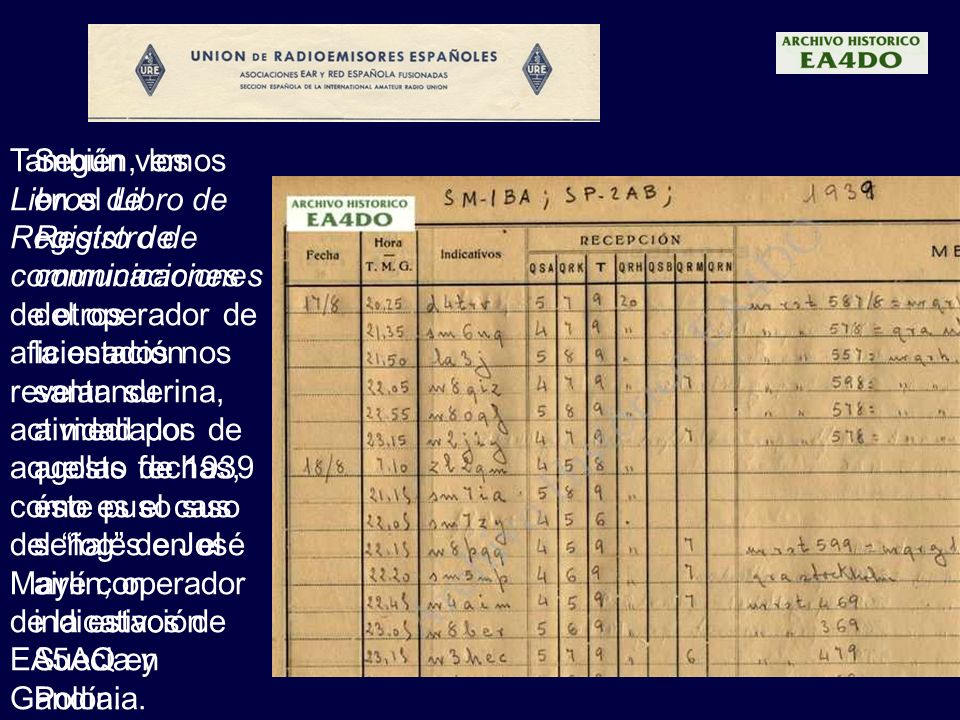 UNION DE RADIOEMISORES ESPAÑOLES
ASOCIACIONES EAR Y RED ESPAÑOLA FUSIONADAS
SECCION ESPAÑOLA DE LA INTERNATIONAL AMATEUR RADIO UNION
URE
URE
ARCHIVO HISTORICO
EA4DO
También, los
Libros de
Registro de
comunicaciones
de otros
aficionados nos
revelan su
actividad por
aquellas fechas,
como es el caso
del “log” de José
operador
de la estación
EA5AQ en
Gandía.
Según vemos
en el Libro de
Registro de
comunicaciones
del operador de
la estación
santanderina,
a mediados de
agosto de 1939
éste puso sus
señales en el
aire con
indicativos de
Suecia y
Polonia.
ARCHIVO HISTORICO
EA4DO
SM-1BA; SP-2AB; 1939
Fecha Hora T. M. G. Indicativos RECEPCIÓN QSA QRK T QRH QSB QRM QRN ME
17/8 20,25 d4trv 5 7 9 20 ur rst 587/8 =
21,35 sm6nq 4 7 9 " " " 578 = qra
21,50 la3j 5 8 9 " " " 557 =
22,05 w8giz 4 7 9 " 7 " " 598=
22,55 5 8 9 " " " 578=
23,15 w2jzy 4 7 9 " 7 " " 578=
18/8 7,10 zl2qm 4 5 8 "
21,15 sm7ia 5 8 9 "
22,05 sm7zy 4 5 6 .
22,15 w8pqq 4 5 9 " 7 ur rst 599 =
22.20 sm5mp 4 6 9 " qra stockholm
22,45 w4aim 4 5 9 " 7 ur rst 469
23.05 w8ber 5 6 9 " " " 369
23,15 w3hec 5 7 9 " 6 " " 479